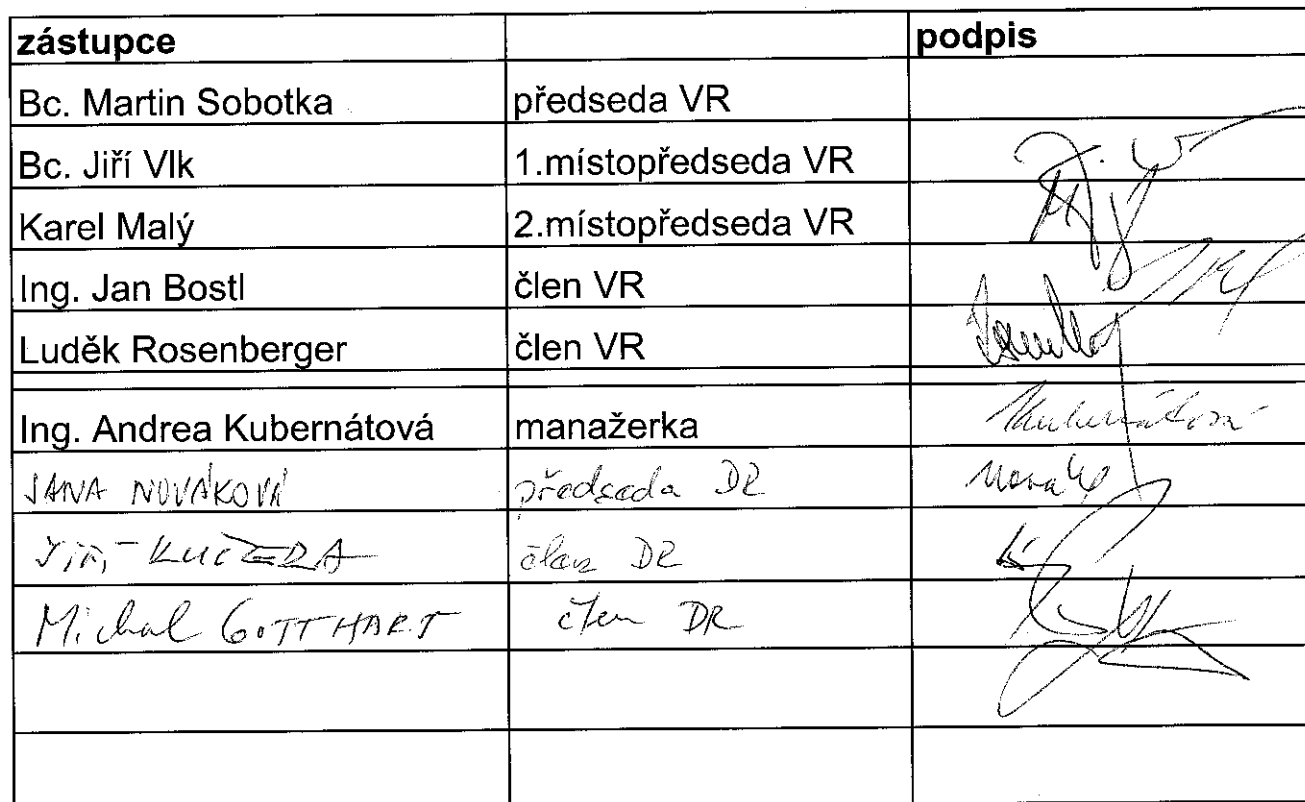 zástupce podpis
Bc. Martin Sobotka předseda VR
Bc. Jiří Vlk 1.místopředseda VR
Karel Malý 2.místopředseda VR
Ing. Jan Bostl člen VR
Luděk Rosenberger člen VR
Ing. Andrea Kubernátová manažerka Kubernátová
JANA NOVÁKOVÁ předseda DR
JIŘÍ KUČERA člen DR
Michal GOTTHART člen DR